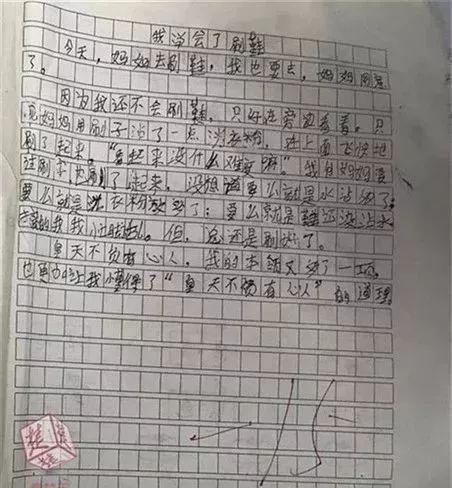 我学会了刷鞋
今天，妈妈去刷鞋，我也要去，妈妈同意
了。
因为我还不会刷鞋，只好在旁边看着。只
见妈妈用刷子沾了一点洗衣粉，在上面飞快地
刷了起来。“看起来没什么难度嘛。”我向妈妈要
过刷子也刷了起来，没想道要么就是水沾多了
要么就是洗衣粉放多了；要么就是鞋还没沾水
的我
但，总还是刷好了。
皇天不负有心人，我的本领又多了一项，
也更加让我懂得了“皇天不负有心人”的道理